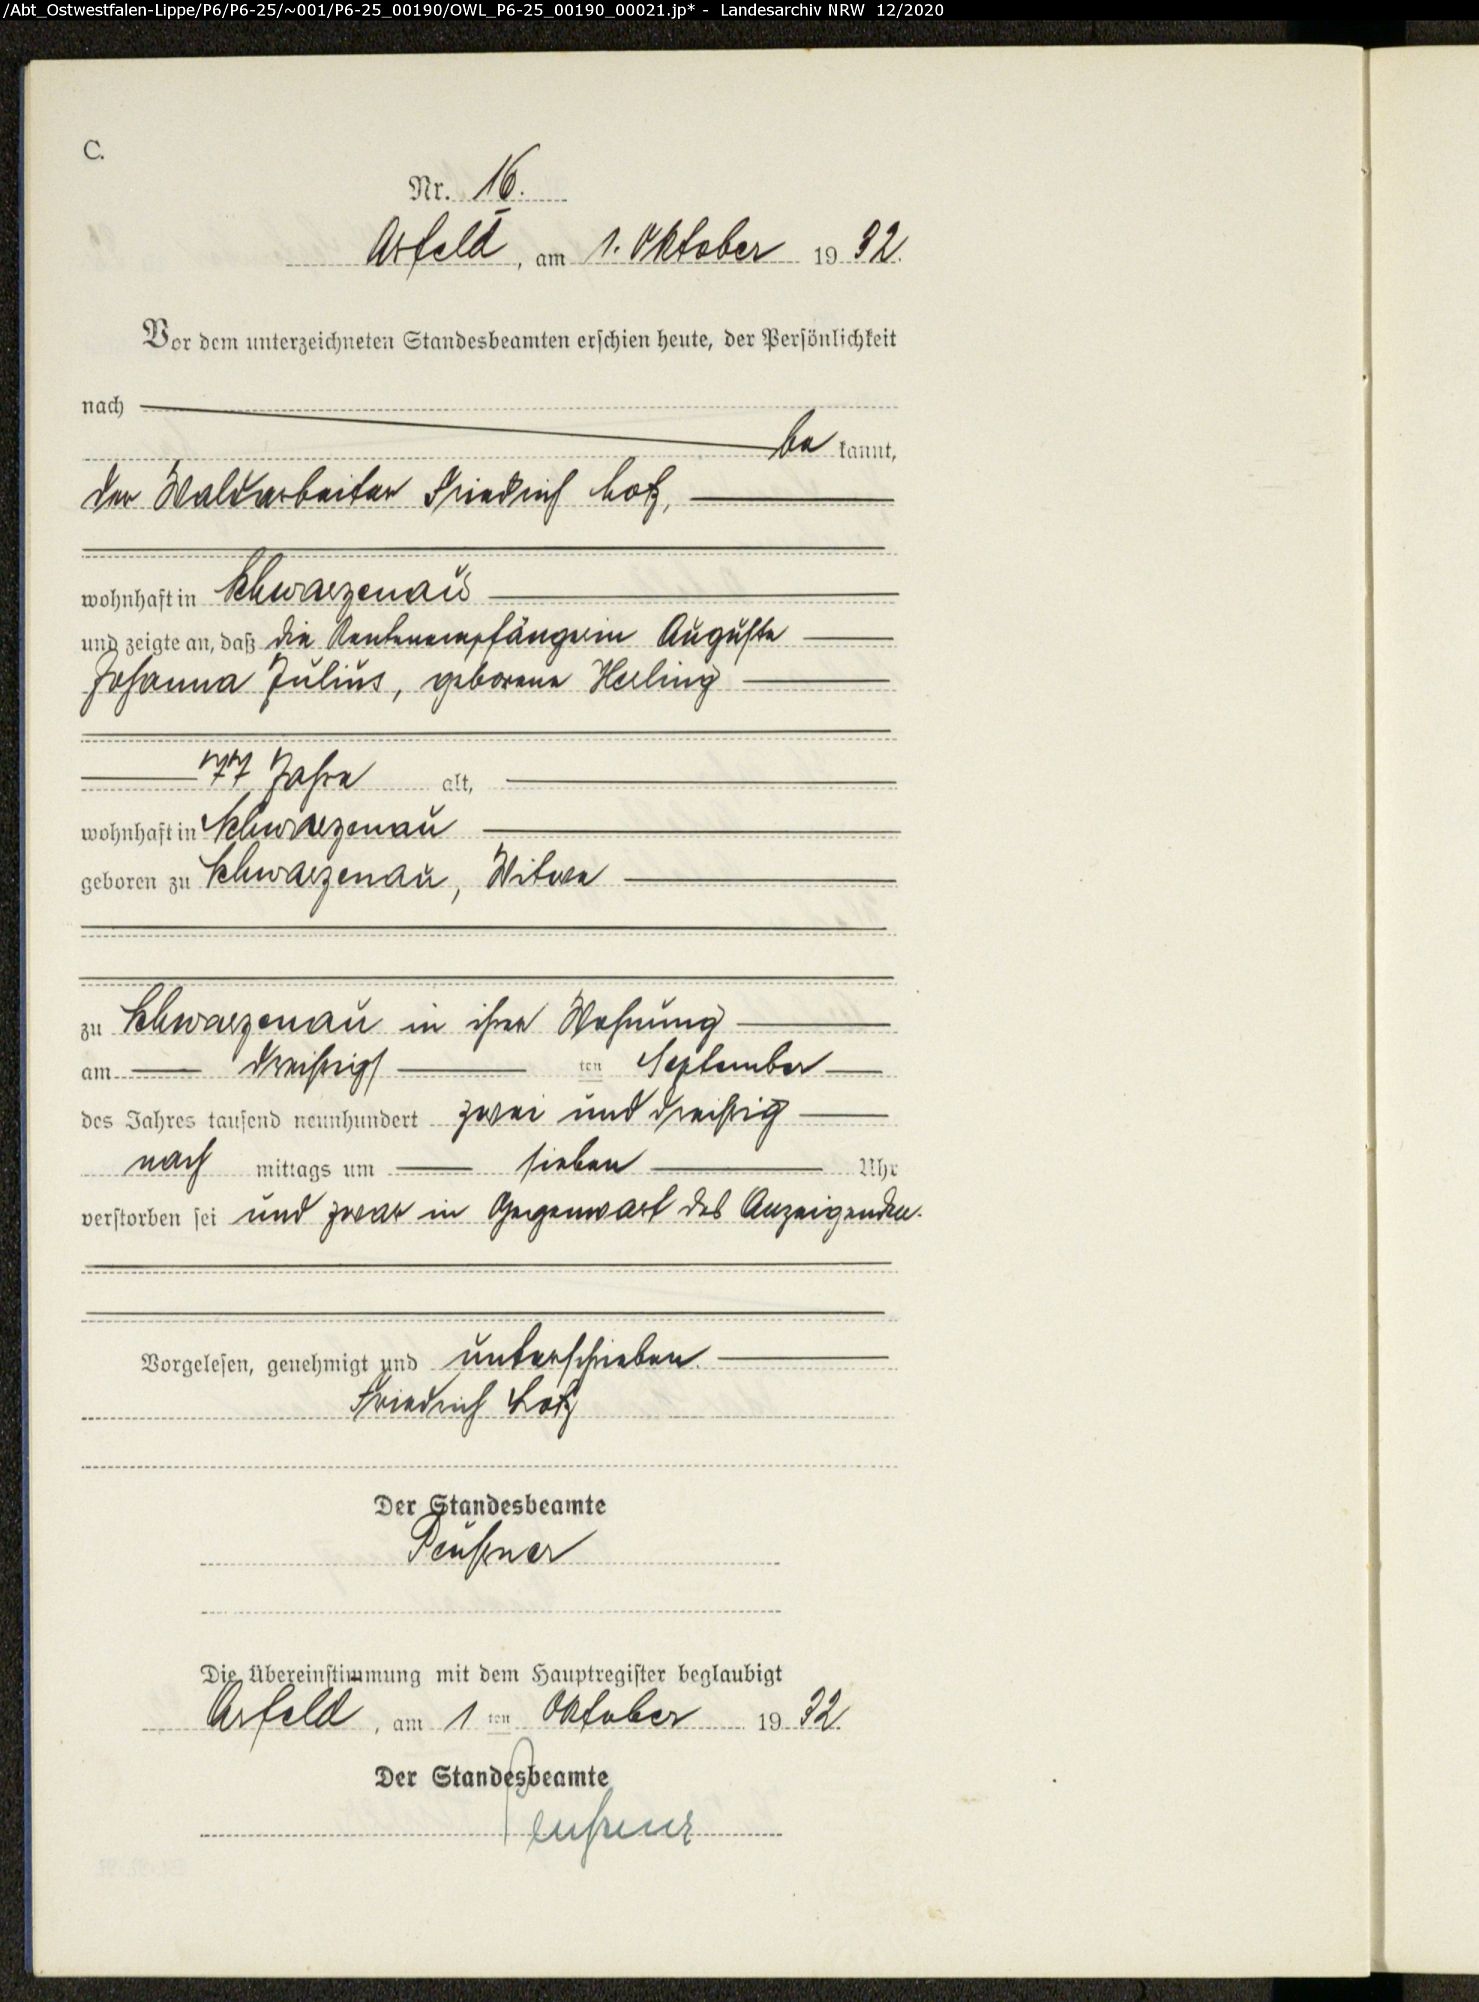 /Abt_Ostwestfalen-Lippe/P6/P6-25/~001/P6-25_00190/OWL_P6-25_00190_00021.jp* - Landesarchiv NRW 12/2020
C.
Nr. 16.
Arfeld, am 1. Oktober 1932.
Vor dem unterzeichneten Standesbeamten erschien heute, der Persönlichkeit
nach
be kannt,
der Waldarbeiter Friedrich Lotz,
wohnhaft in Schwarzenau
und zeigte an, daß die Rentenempfängerin Auguste
Johanna Julius, geborene Herling
77 Jahre alt,
wohnhaft in Schwarzenau
geboren zu Schwarzenau, Witwe
zu Schwarzenau in ihrer Wohnung
am dreißigsten September
des Jahres tausend neunhundert zwei und dreißig
nach mittags um sieben Uhr
verstorben sei und zwar in Gegenwart des Anzeigenden.
Vorgelesen, genehmigt und unterschrieben.
Friedrich Lotz
Der Standesbeamte
Die Übereinstimmung mit dem Hauptregister beglaubigt
Arfeld, am 1 ten Oktober 1932.
Der Standesbeamte